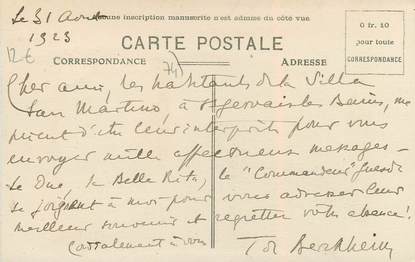 Le 31 Août
Aucune inscription manuscrite n'est admise du côté vue
1923
12€
CARTE POSTALE
0 fr. 10
pour toute
CORRESPONDANCE
CORRESPONDANCE
74
ADRESSE
Cher ami, les habitants de la Villa
San Martino, à St Gervais les Bains, me
prient d'être leur interprète pour vous
envoyer mille affectueux messages -
Le Duc, la Belle Rita, le "Commandeur"
se joignent à moi pour vous adresser leur
meilleur souvenir et regretter votre absence!
Cordialement à vous